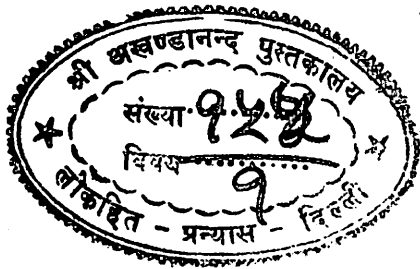 श्री अखण्डानन्द पुस्तकालय
संख्या
विषय
१
लोकहित - प्रन्यास - दिल्ली